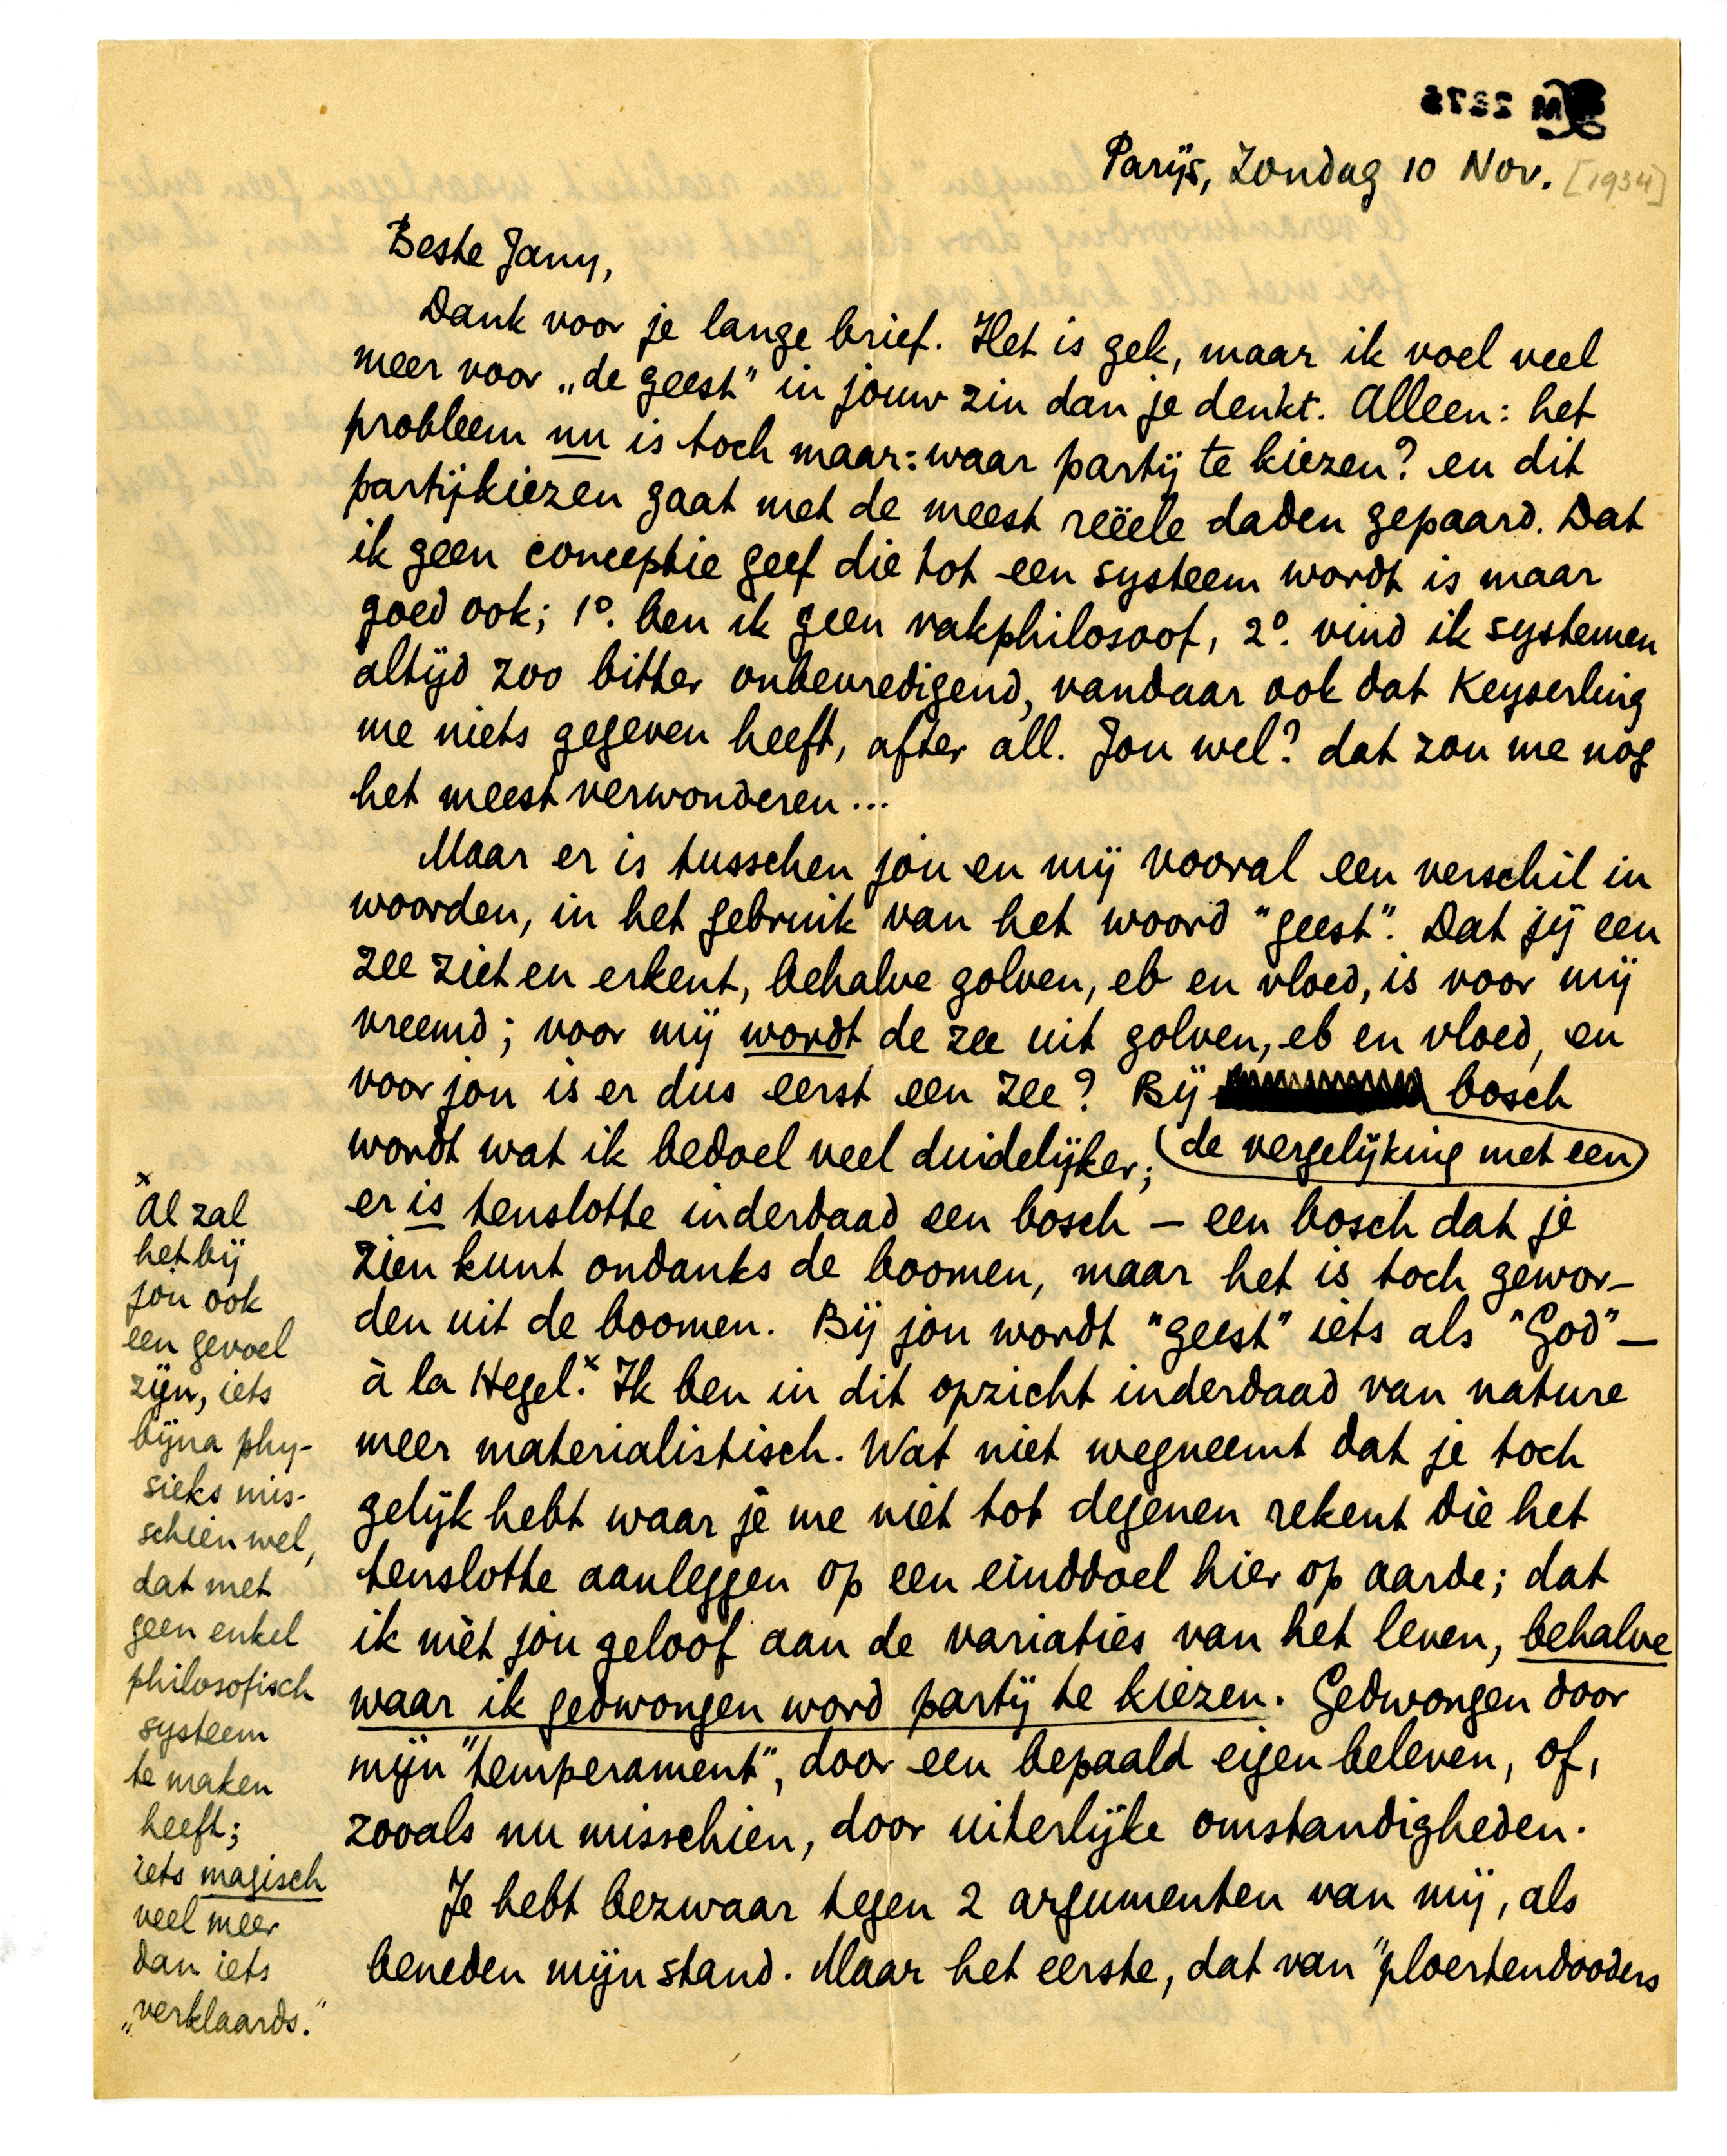 Parijs, Zondag 10 Nov. [1934]
Beste Jany,
Dank voor je lange brief. Het is gek, maar ik voel veel
meer voor „de geest" in jouw zin dan je denkt. Alleen: het
probleem nu is toch maar: waar partij te kiezen? en dit
partijkiezen gaat met de meest reëele daden gepaard. Dat
ik geen conceptie geef die tot een systeem wordt is maar
goed ook; 1º. ben ik geen vakphilosoof, 2º. vind ik systemen
altijd zoo bitter onbevredigend, vandaar ook dat Keyserling
me niets gegeven heeft, after all. Jou wel? dat zou me nog
het meest verwonderen...
Maar er is tusschen jou en mij vooral een verschil in
woorden, in het gebruik van het woord "geest". Dat jij een
zee ziet en erkent, behalve golven, eb en vloed, is voor mij
vreemd; voor mij wordt de zee uit golven, eb en vloed, en
voor jou is er dus eerst een zee? Bij bosch
wordt wat ik bedoel veel duidelijker; (de vergelijking met een)
er is tenslotte inderdaad een bosch – een bosch dat je
zien kunt ondanks de boomen, maar het is toch gewor-
den uit de boomen. Bij jou wordt "geest" iets als "God" –
à la Hegel.x Ik ben in dit opzicht inderdaad van nature
meer materialistisch. Wat niet wegneemt dat je toch
gelijk hebt waar je me niet tot degenen rekent die het
tenslotte aanleggen op een einddoel hier op aarde; dat
ik mèt jou geloof aan de variaties van het leven, behalve
waar ik gedwongen word partij te kiezen. Gedwongen door
mijn "temperament", door een bepaald eigen beleven, of,
zooals nu misschien, door uiterlijke omstandigheden.
Je hebt bezwaar tegen 2 argumenten van mij, als
beneden mijn stand. Maar het eerste, dat van "ploertendooders
x
Al zal
het bij
jou ook
een gevoel
zijn, iets
bijna phy-
sieks mis-
schien wel,
dat met
geen enkel
philosofisch
systeem
te maken
heeft;
iets magisch
veel meer
dan iets
„verklaards."